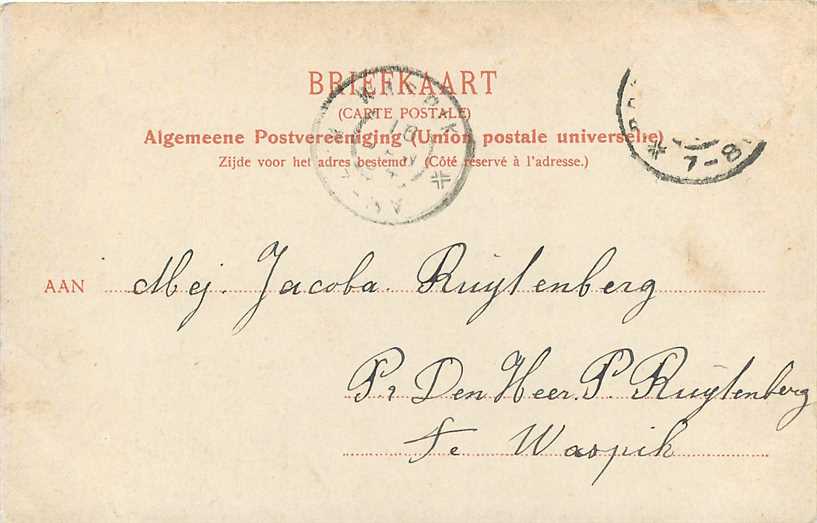 BRIEFKAART
(CARTE POSTALE)
Algemeene Postvereeniging (Union postale universelle)
Zijde voor het adres bestemd. (Côté réservé à l'adresse.)
7-8
AAN Mej. Jacoba. Ruytenberg
Pr Den Heer. P. Ruytenberg
Te Waspik